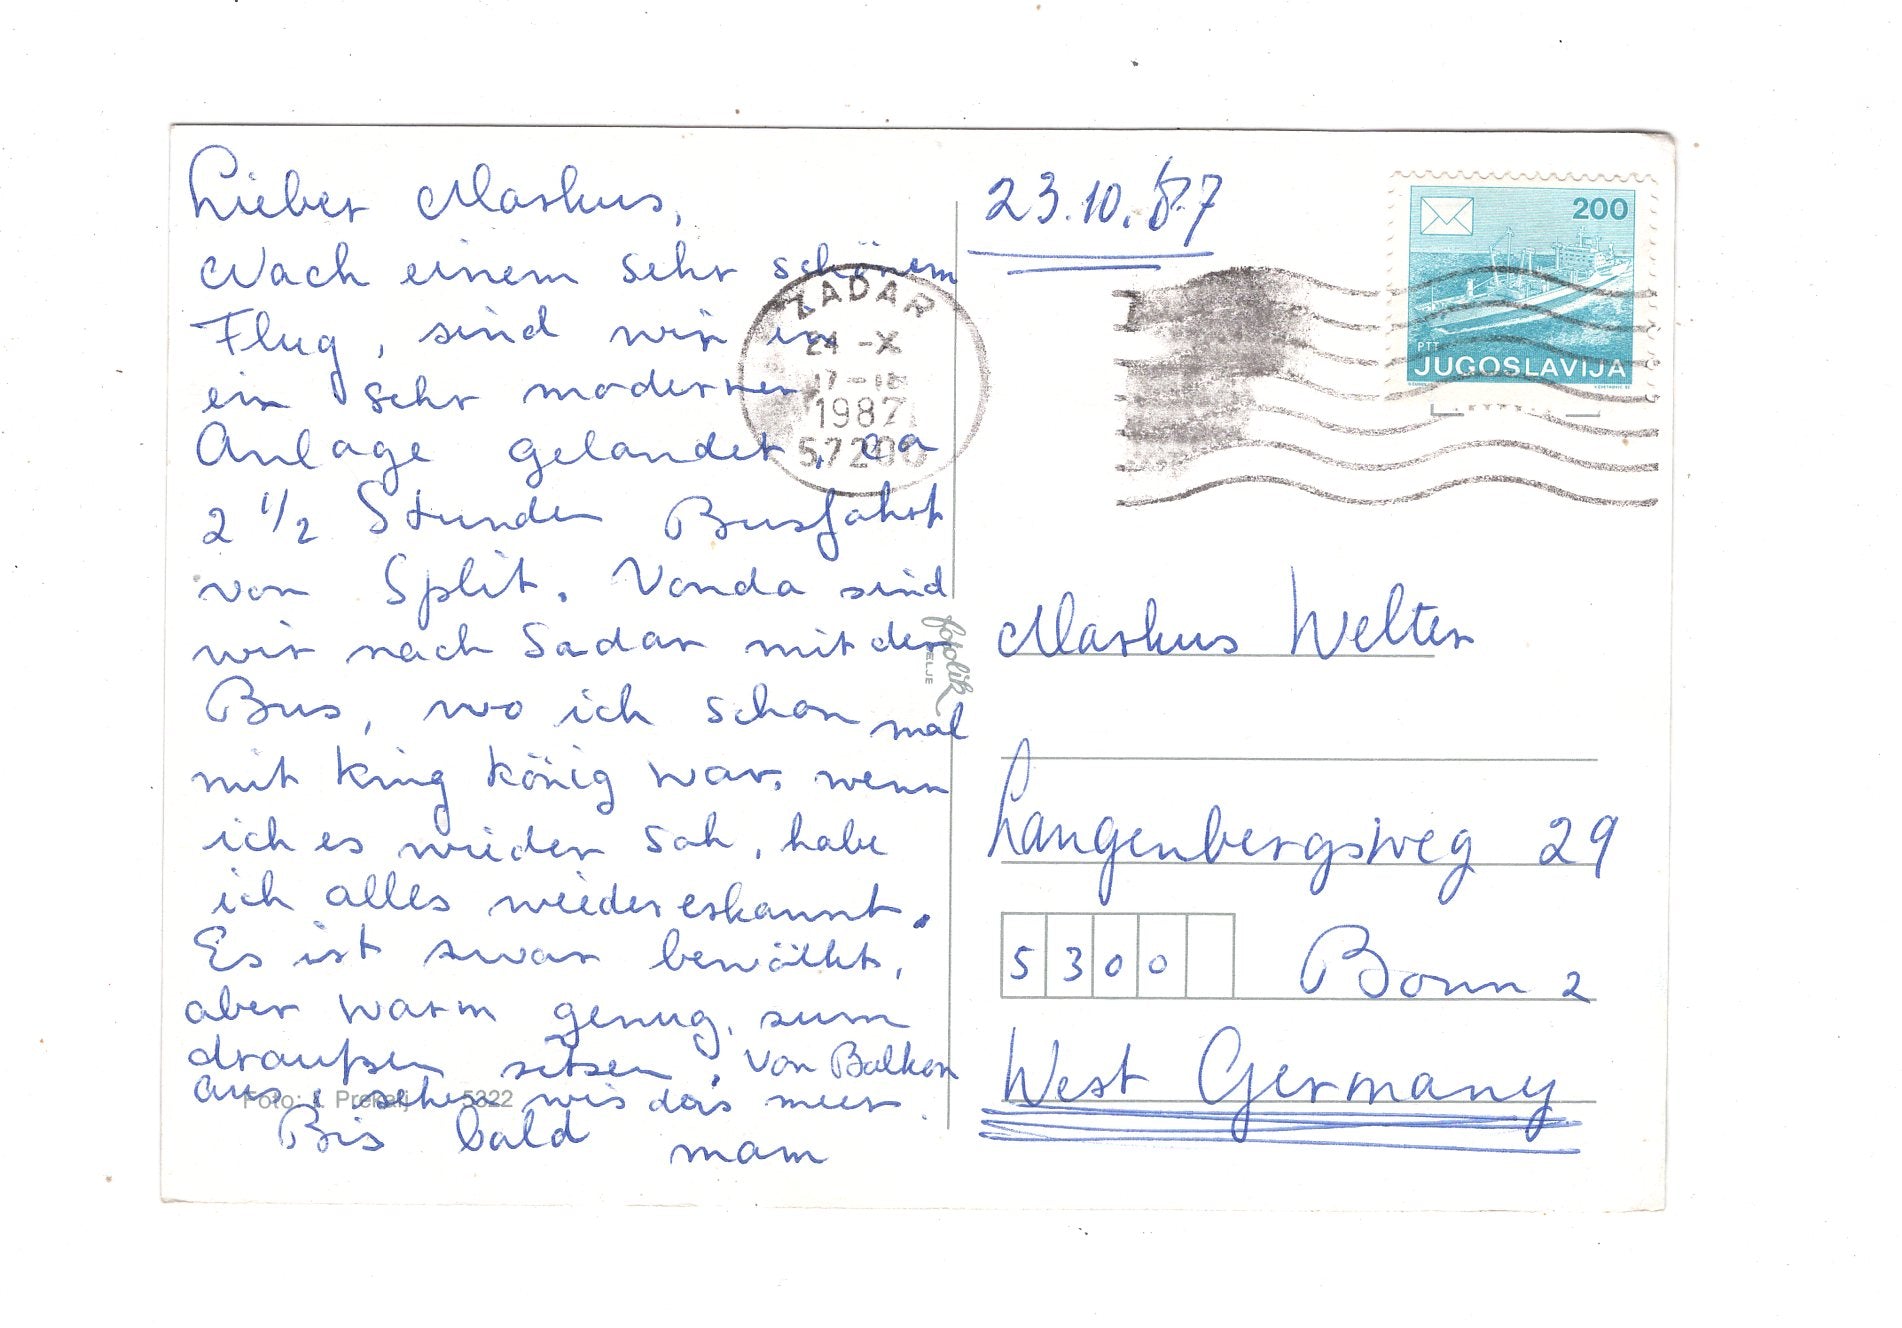 Lieber Markus,
Nach einem sehr schönem
Flug, sind wir in
ein sehr moderner
Anlage gelandet, ca
2 1/2 Stunden Busfahrt
von Split. Vonda sind
wir nach Sadar mit den
Bus, wo ich schon mal
mit King König war, wenn
ich es wieder sah, habe
ich alles wiedererkannt.
Es ist swar bewölkt,
aber warm genug, sum
draußen sitsen, von Balkon
aus, sehen wir das meer.
Bis bald mam
Foto: Prekalj 5322
fotolik
ELJE
ZADAR
24 -X
17-18
1987
57200
23.10.87
200
PTT
JUGOSLAVIJA
Markus Welter
Langenbergsweg 29
5300 Bonn 2
West Germany